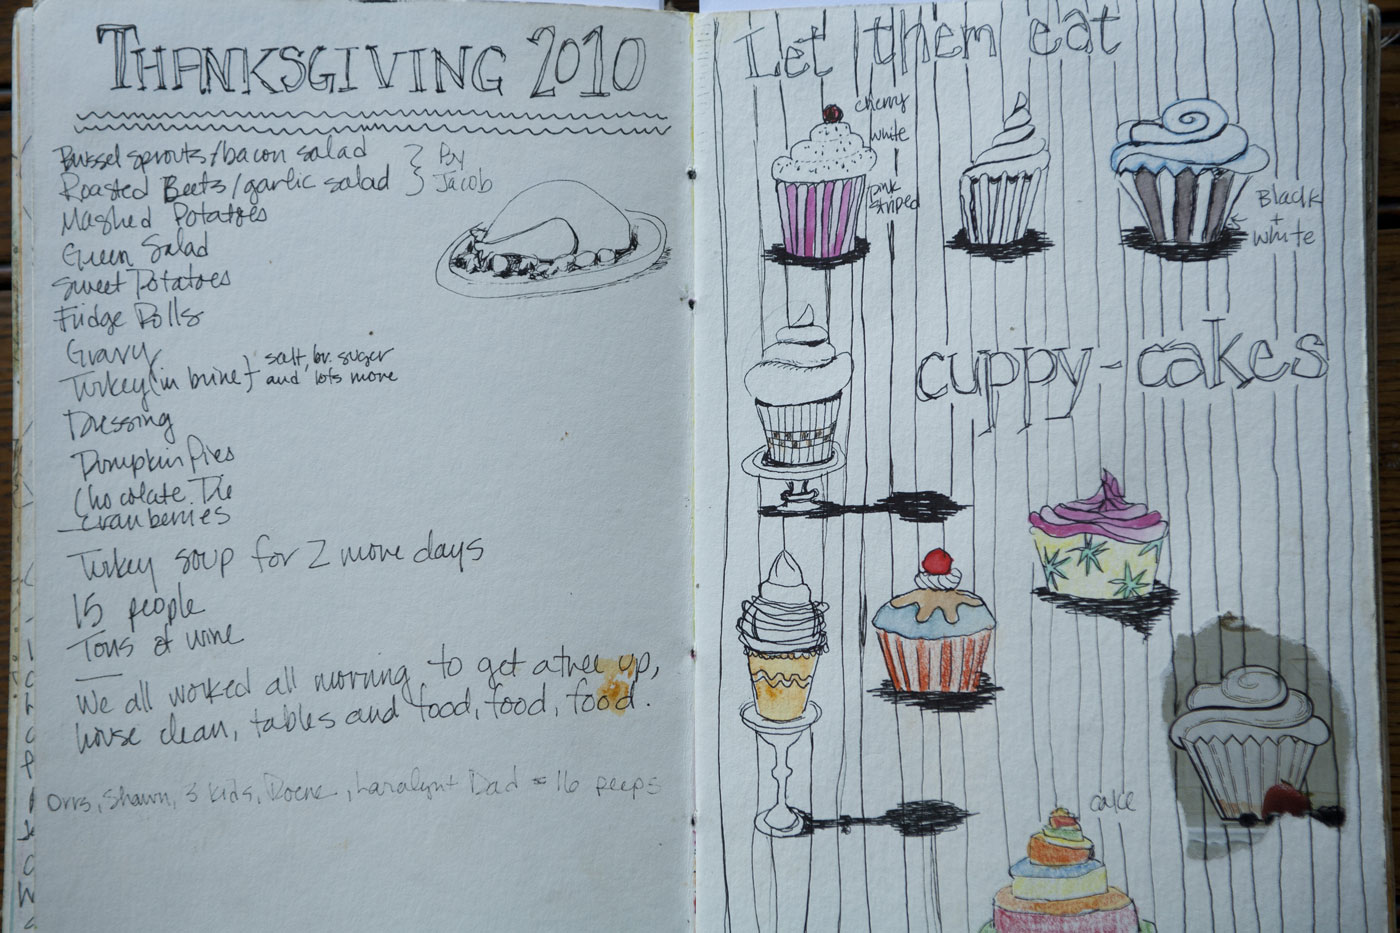 THANKSGIVING 2010
Brussel sprouts/bacon salad } By
Roasted Beets/garlic salad } Jacob
Mashed Potatoes
Green Salad
Sweet Potatoes
Fridge Rolls
Gravy
Turkey (in brine) { salt, br. suger
and, lots more
Dressing
Pumpkin Pies
Chocolate Pie
Cranberries
Turkey soup for 2 more days
15 people
Tons of wine
We all worked all morning to get a tree up,
house clean, tables and food, food, food.
Orrs, Shawn, 3 kids, Roene, Laralyn + Dad = 16 peeps
Let them eat
cherry
white
pink
striped
Black
+
white
cuppy-cakes
cake